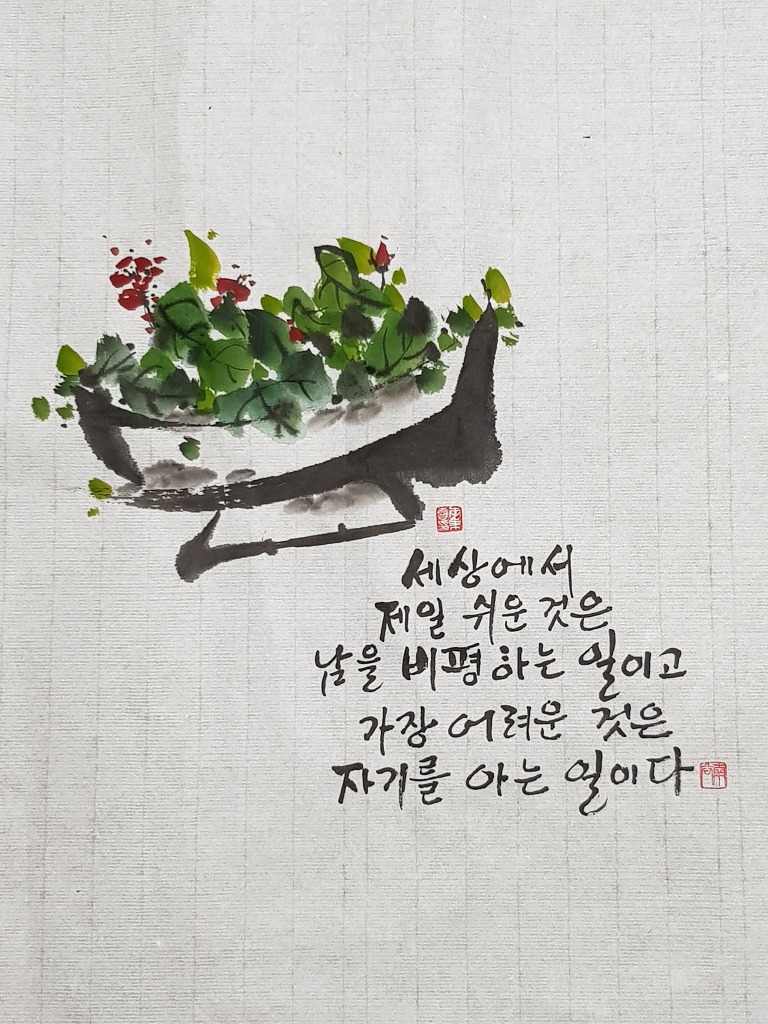 세상에서
제일 쉬운 것은
남을 비평하는 일이고
가장 어려운 것은
자기를 아는 일이다